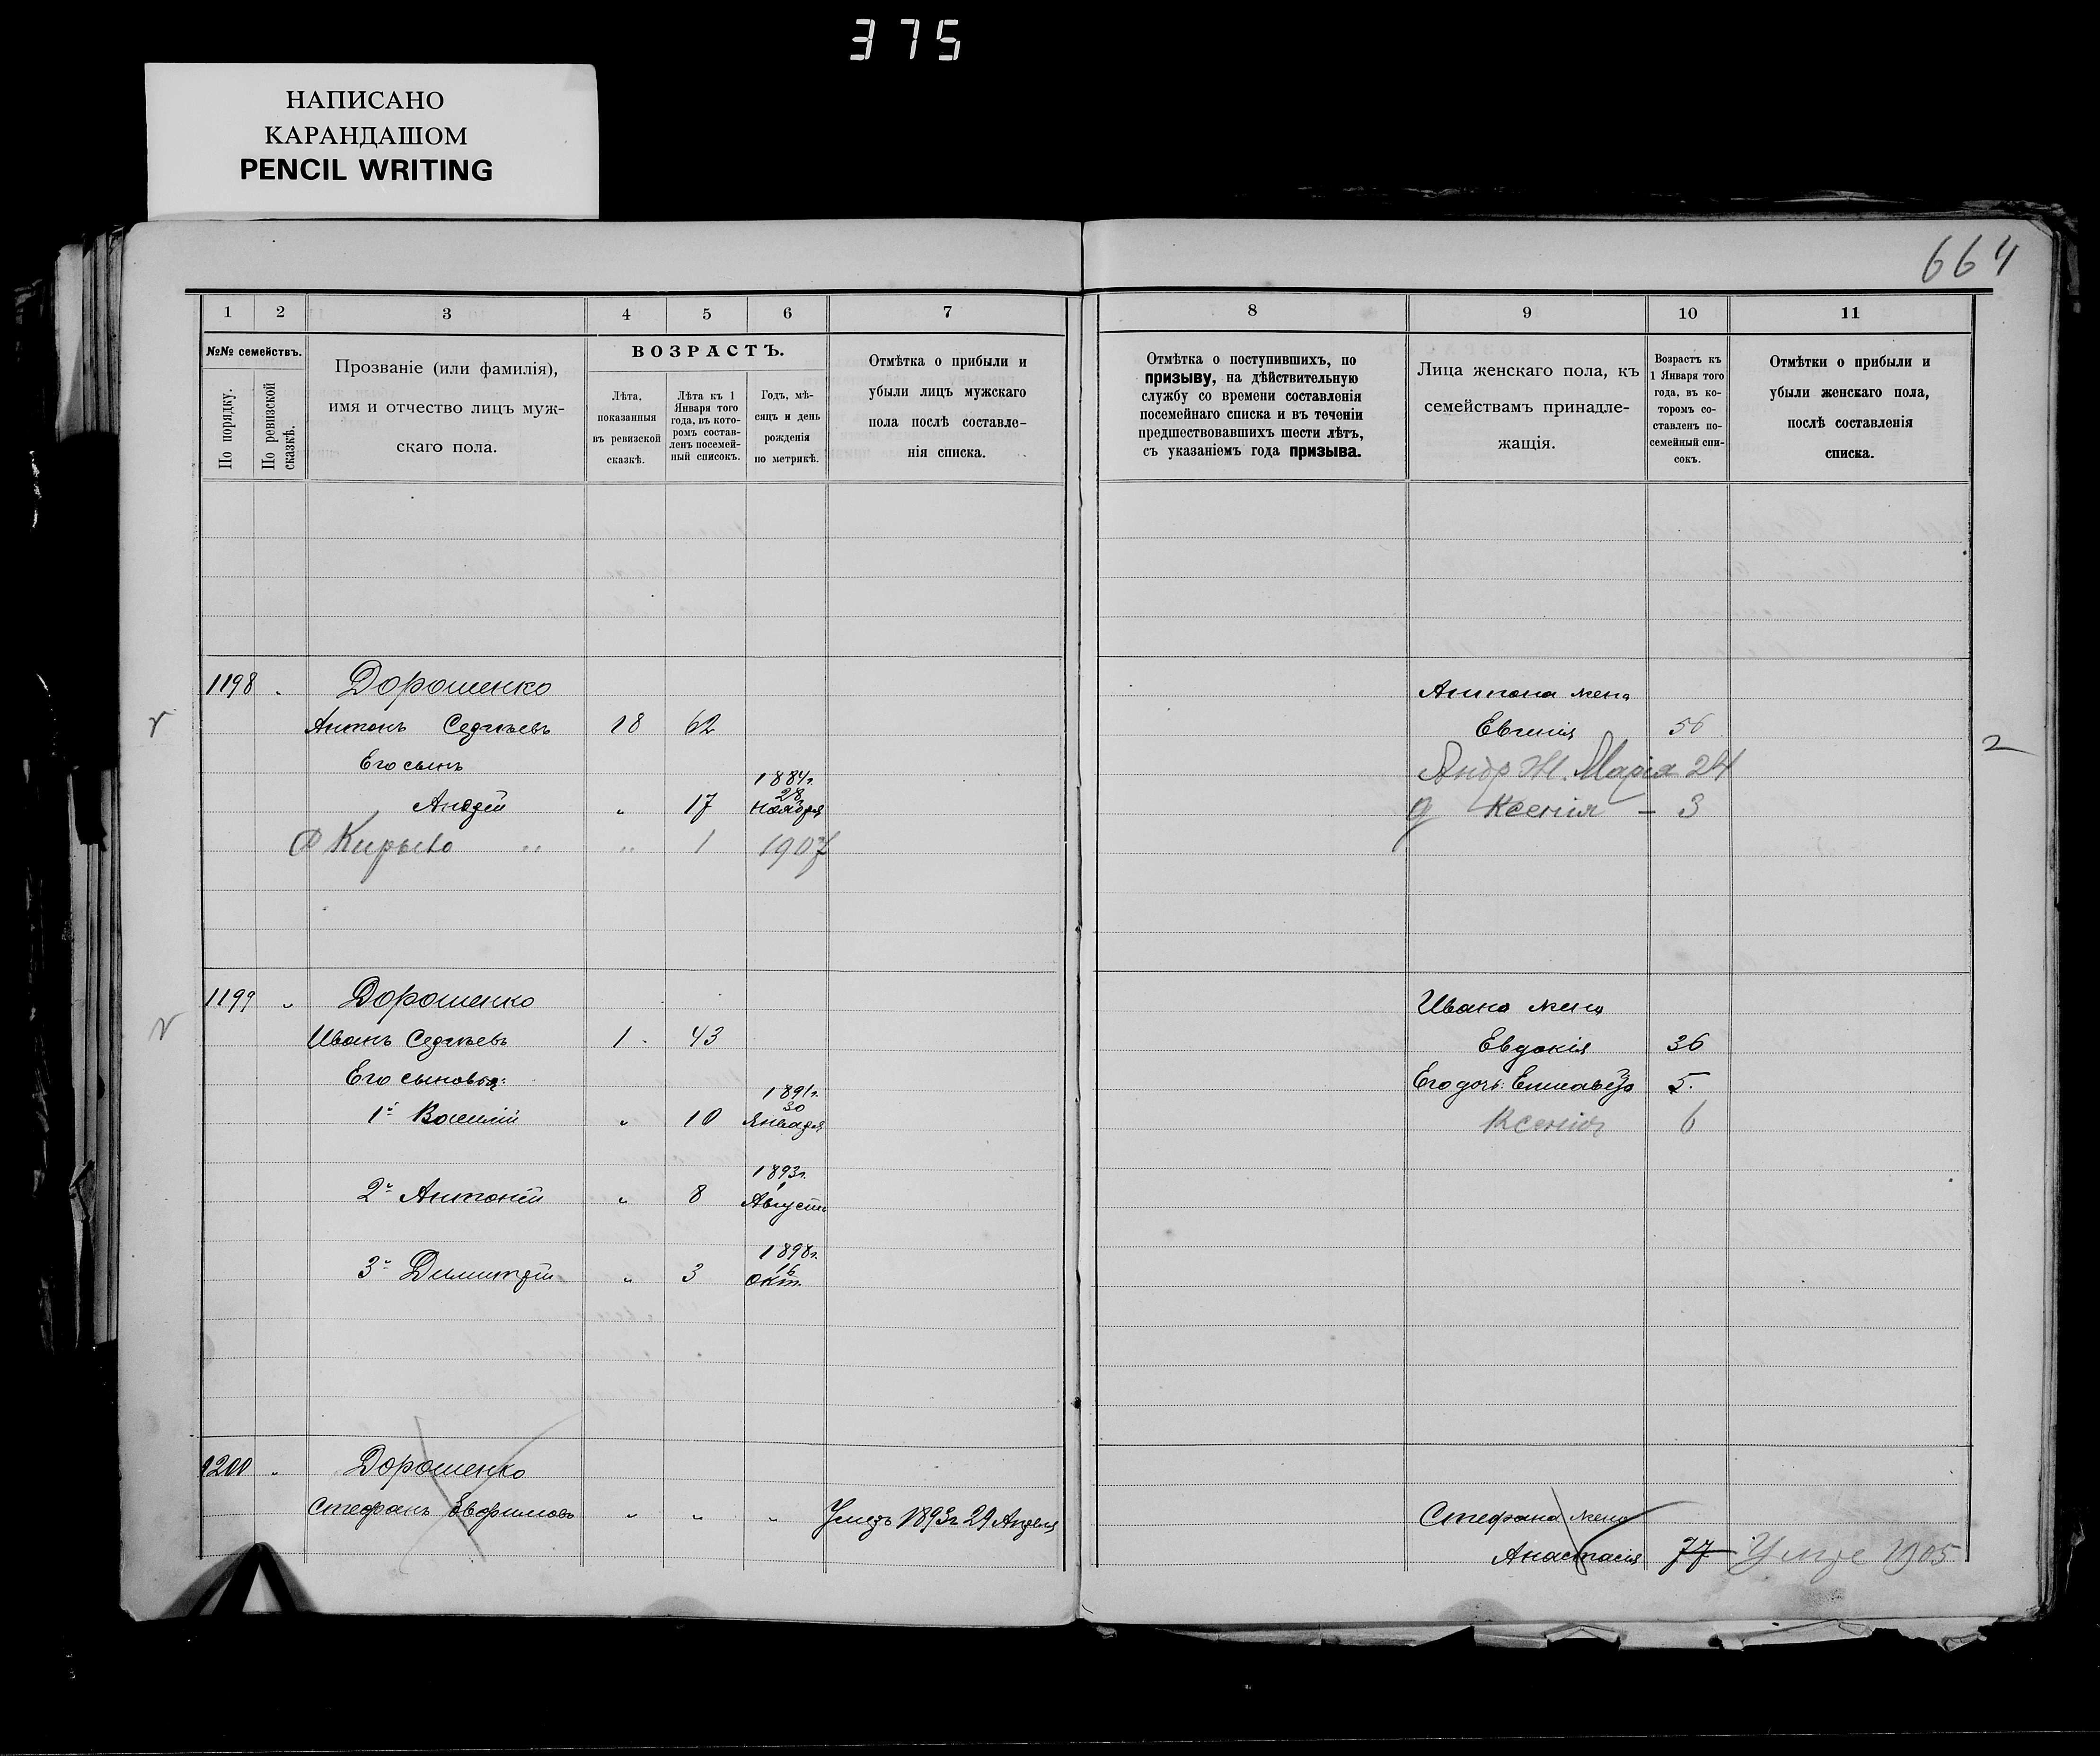 375
НАПИСАНО
КАРАНДАШОМ
PENCIL WRITING
664
1 2 3 4 5 6 7 8 9 10 11
№№ семействъ.
По порядку.
По ревизской сказкѣ.
Прозваніе (или фамилія),
имя и отчество лицъ муж-
скаго пола.
ВОЗРАСТЪ.
Лѣта,
показанныя
въ ревизской
сказкѣ.
Лѣта къ 1
Января того
года, въ кото-
ромъ состав-
ленъ посемей-
ный списокъ.
Годъ, мѣ-
сяцъ и день
рожденія
по метрикѣ.
Отмѣтка о прибыли и
убыли лицъ мужскаго
пола послѣ составле-
нія списка.
Отмѣтка о поступившихъ, по
призыву, на дѣйствительную
службу со времени составленія
посемейнаго списка и въ теченіи
предшествовавшихъ шести лѣтъ,
съ указаніемъ года призыва.
Лица женскаго пола, къ
семействамъ принадле-
жащія.
Возрастъ къ
1 Января того
года, въ ко-
торомъ со-
ставленъ по-
семейный спи-
сокъ.
Отмѣтки о прибыли и
убыли женскаго пола,
послѣ составленія
списка.
1198 Дорошенко Антона жена
Антонъ 18 62 Евгенія 56
Его сынъ Андр Ж. Марія 24
1884г. 28 Ноября
Андрей " 17 д Ксенія – 3
Кирило " " 1 1907
2
1199 " Дорошенко Ивана жена
Иванъ 1 43 Евдокія 36
Его сыновья: Его дочь: Елисавета 5.
1891г. 30 Января
1й Василій " 10 Ксенія 6
1893г. 1 Августа
2й Антоній " 8
1898г. 16 Окт.
3й Димитрій " 3
1200 " Дорошенко
Стефанъ Евфимовъ " " " Умеръ 1893г 29 Апреля Стефана жена
Анастасія 77 Умре 1905